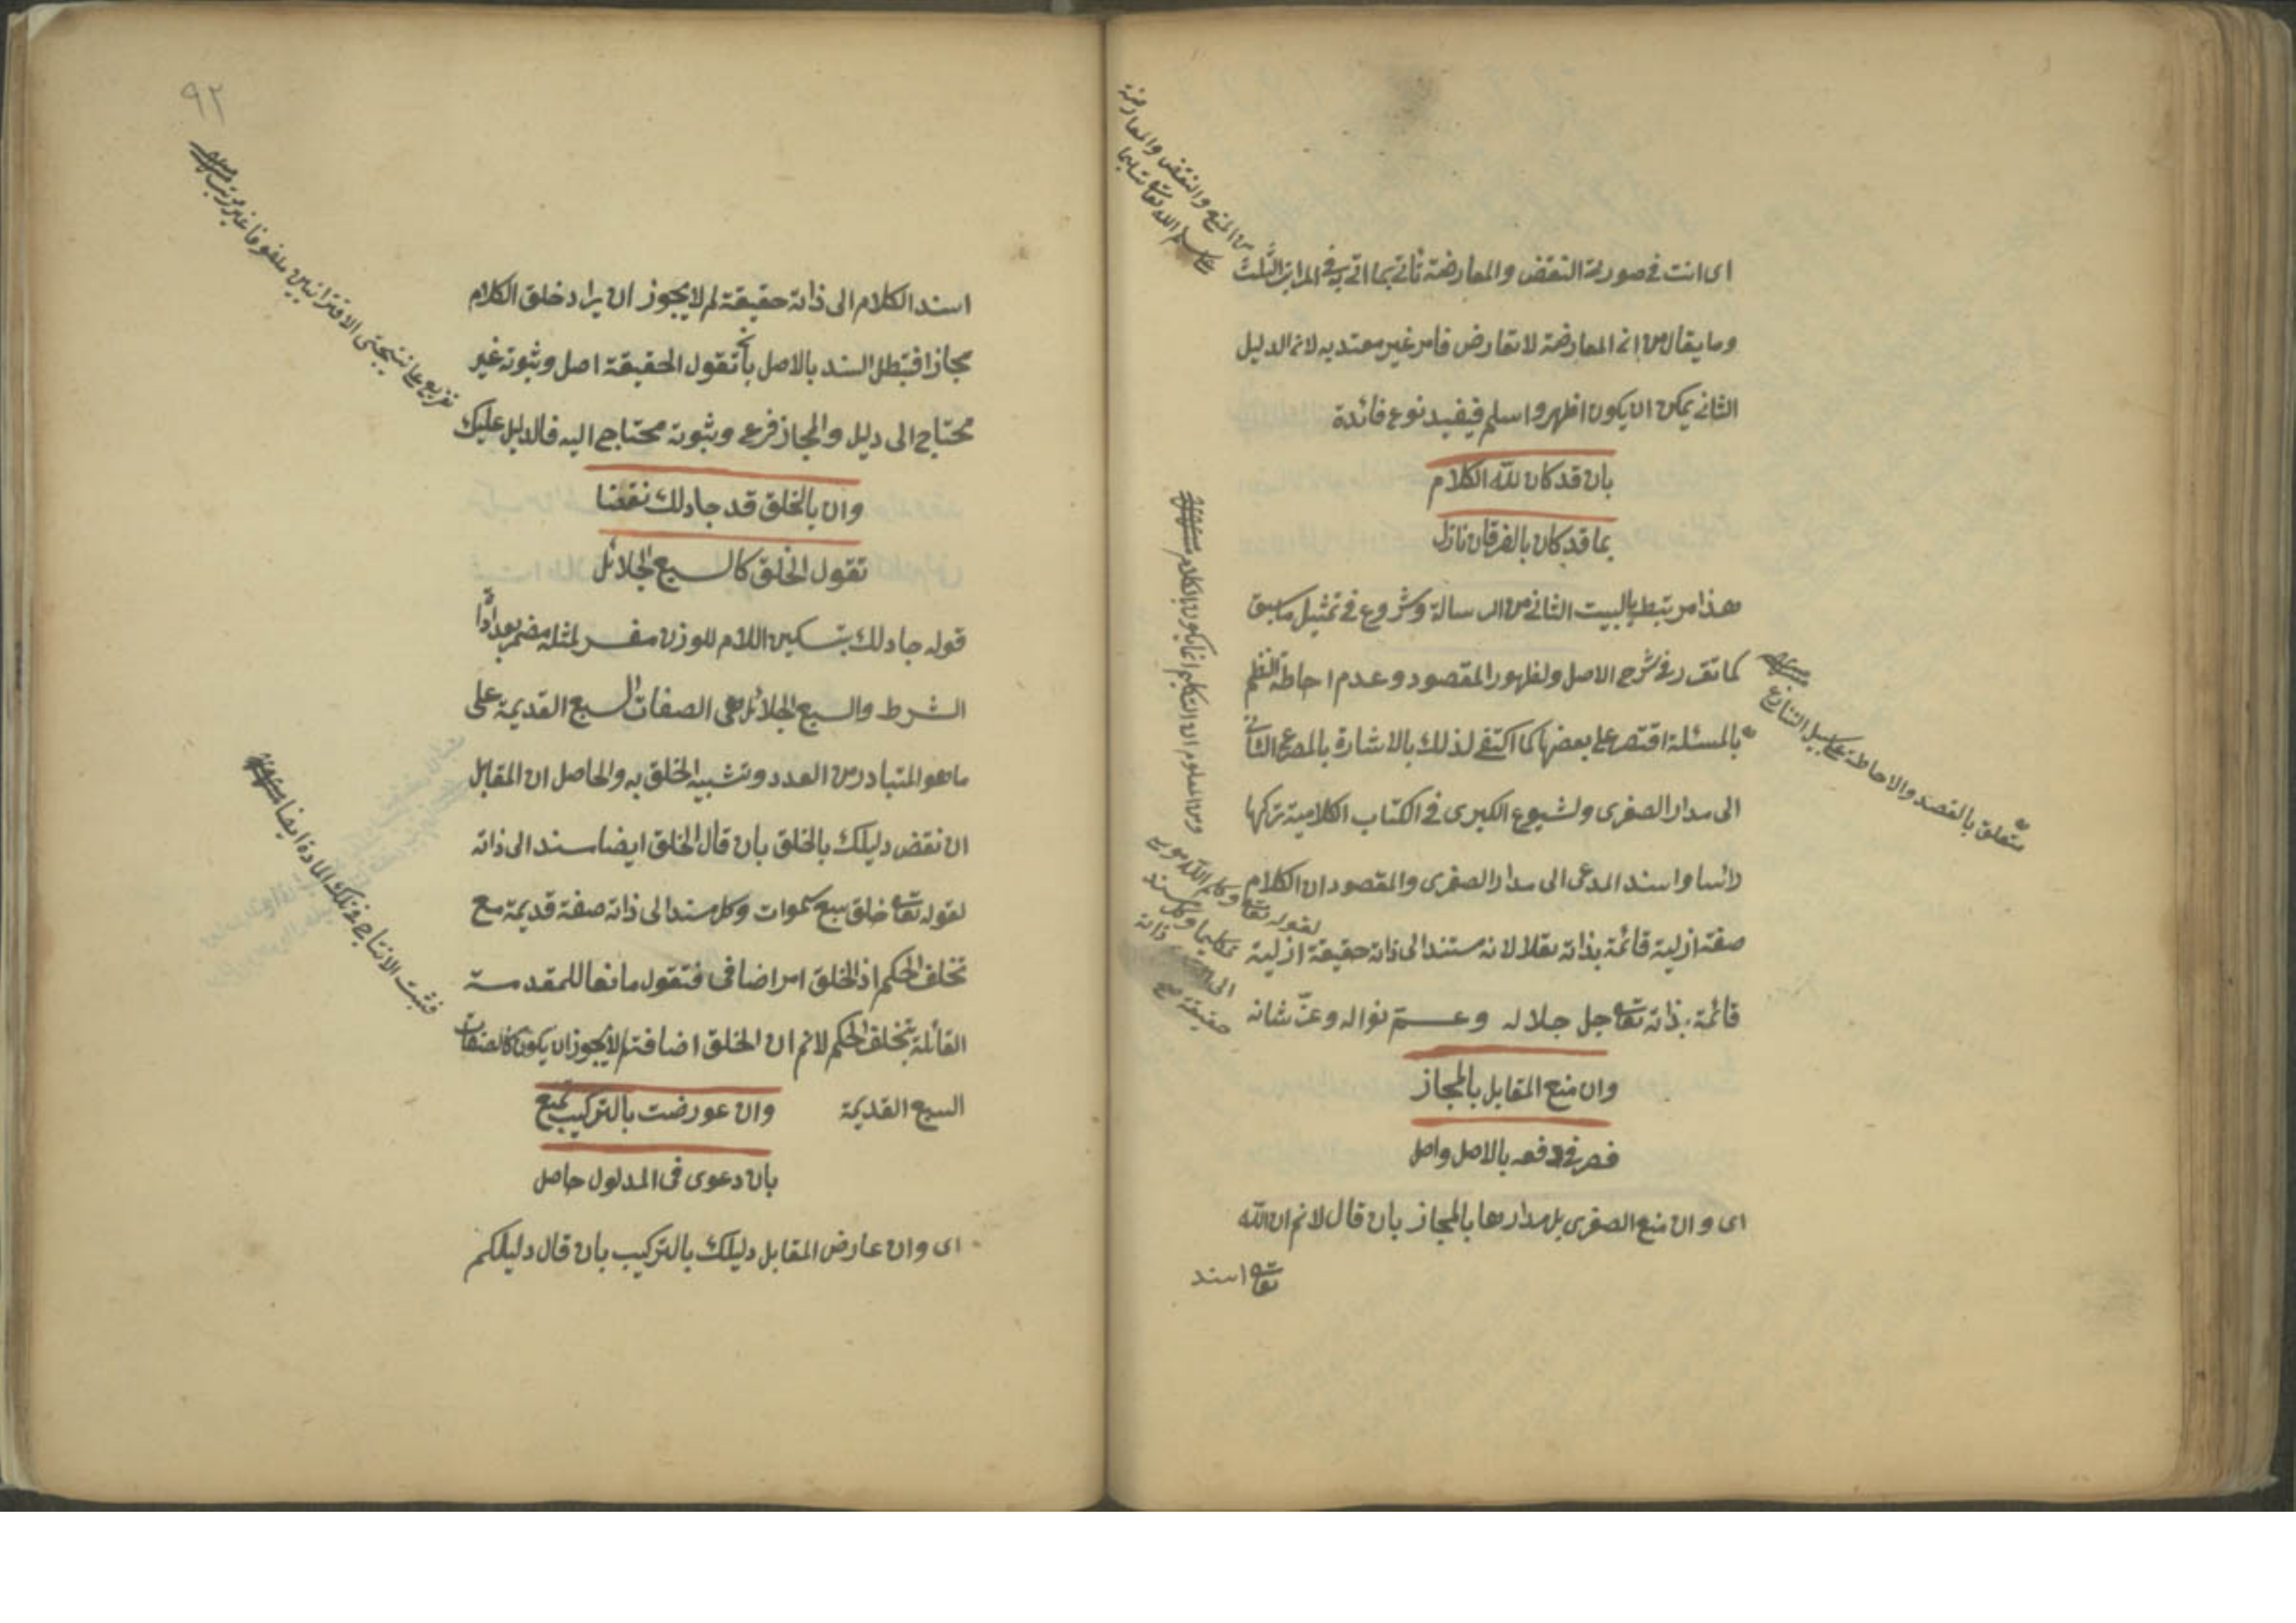 اى انت فى صورتى النقض والمعارضة تأتى بما اتى به فى المراتب الثلث
وما يقال من ان المعارضة لا تعارض فامر غير معتد به لان الدليل
الثانى يمكن ان يكون اظهر واسلم فيفيد نوع فائدة
بان قد كان لله الكلام
بما قد كان بالفرقان نازل
هذا مرتبط بالبيت الثانى من الرسالة وشروع فى تمثيل ما سبق
كما تقرر فى شرح الاصل ولظهور المقصود وعدم احاطة النظم
بالمسئلة اقتصر على بعضها كما اكتفى لذلك بالاشارة بالمصرع الثانى
الى مدار الصغرى ولشيوع الكبرى فى الكتاب الكلامية تركها
رأسا واسند المدعى الى مدار الصغرى والمقصود ان الكلام
صفة ازلية قائمة بذاته تعالى لانه مستند الى ذاته حقيقة ازلية
قائمة بذاته تعالى جل جلاله وعم نواله وعز شانه
وان منع المقابل بالمجاز
فصر فى دفعه بالاصل واصل
اى وان منع الصغرى بل مدارها بالمجاز بان قال لانم ان الله
تعالى اسند
من المنع والنقض والمعارضة
متعلق بالقصد والاحاطة على سبيل التنازع
ومن المعلوم ان التكليم انما يكون بالكلام
لقوله تعالى وكلم الله موسى
تكليما وكل
حقيقة
٩٢
اسند الكلام الى ذاته حقيقة لم لا يجوز ان يراد خلق الكلام
مجازا فتبطل السند بالاصل بان تقول الحقيقة اصل وثبوته غير
محتاج الى دليل والمجاز فرع وثبوته محتاج اليه فالدليل عليك
وان بالخلق قد جادلك نقضا
تقول الخلق كالسبع الجلائل
قوله جادلك بتسكين اللام للوزن مفسر لمثله مضمر بعد اداة
الشرط والسبع الجلائل هى الصفات السبع القديمة على
ما هو المتبادر من العدد وتشبيه الخلق به والحاصل ان المقابل
ان نقض دليلك بالخلق بان قال الخلق ايضا سند الى ذاته
لقوله تعالى خلق سبع سموات وكل مسند الى ذاته صفة قديمة مع
تخلف الحكم اذ الخلق امر اضافى فتقول مانعا للمقدمة
القائلة بتخلف الحكم لانم ان الخلق اضافة لم لا يجوز ان يكون كالصفات
السبع القديمة
وان عورضت بالتركيب تمنع
بان دعوى فى المدلول حاصل
اى وان عارض المقابل دليلك بالتركيب بان قال دليلكم
تفريع على نتيجتى الاقترانيين
فثبت الانتاج فى تلك المادة ايضا